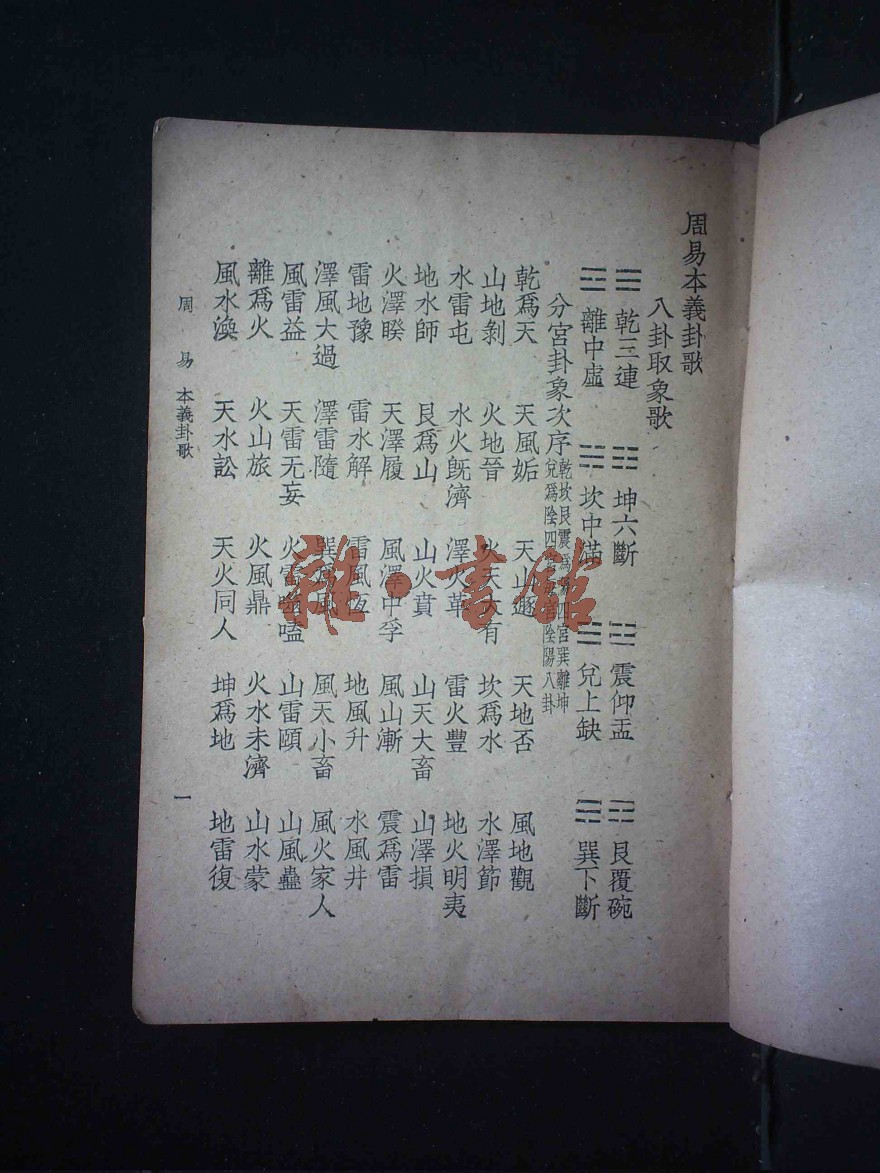 周易本義卦歌
八卦取象歌
☰ 乾三連 ☷ 坤六斷 ☳ 震仰盂 ☶ 艮覆碗
☲ 離中虛 ☵ 坎中滿 ☱ 兌上缺 ☴ 巽下斷
分宮卦象次序
乾坎艮震爲陽四宮巽離坤
兌爲陰四宮每宮陰陽八卦
乾爲天 天風姤 天山遯 天地否 風地觀
山地剝 火地晉 火天大有 坎爲水 水澤節
水雷屯 水火既濟 澤火革 雷火豐 地火明夷
地水師 艮爲山 山火賁 山天大畜 山澤損
火澤睽 天澤履 風澤中孚 風山漸 震爲雷
雷地豫 雷水解 雷風恆 地風升 水風井
澤風大過 澤雷隨 巽爲風 風天小畜 風火家人
風雷益 天雷无妄 火雷噬嗑 山雷頤 山風蠱
離爲火 火山旅 火風鼎 火水未濟 山水蒙
風水渙 天水訟 天火同人 坤爲地 地雷復
周易 本義卦歌 一
雜·書館